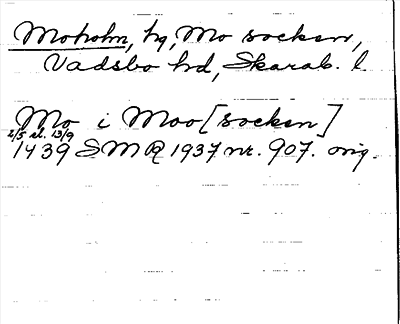 Moholm, hg, Mo socken,
Vadsbo hd, Skarab. l
Mo i Moo [socken]
2/5 el. 13/9
1439 SMR 1937 nr. 907. orig.